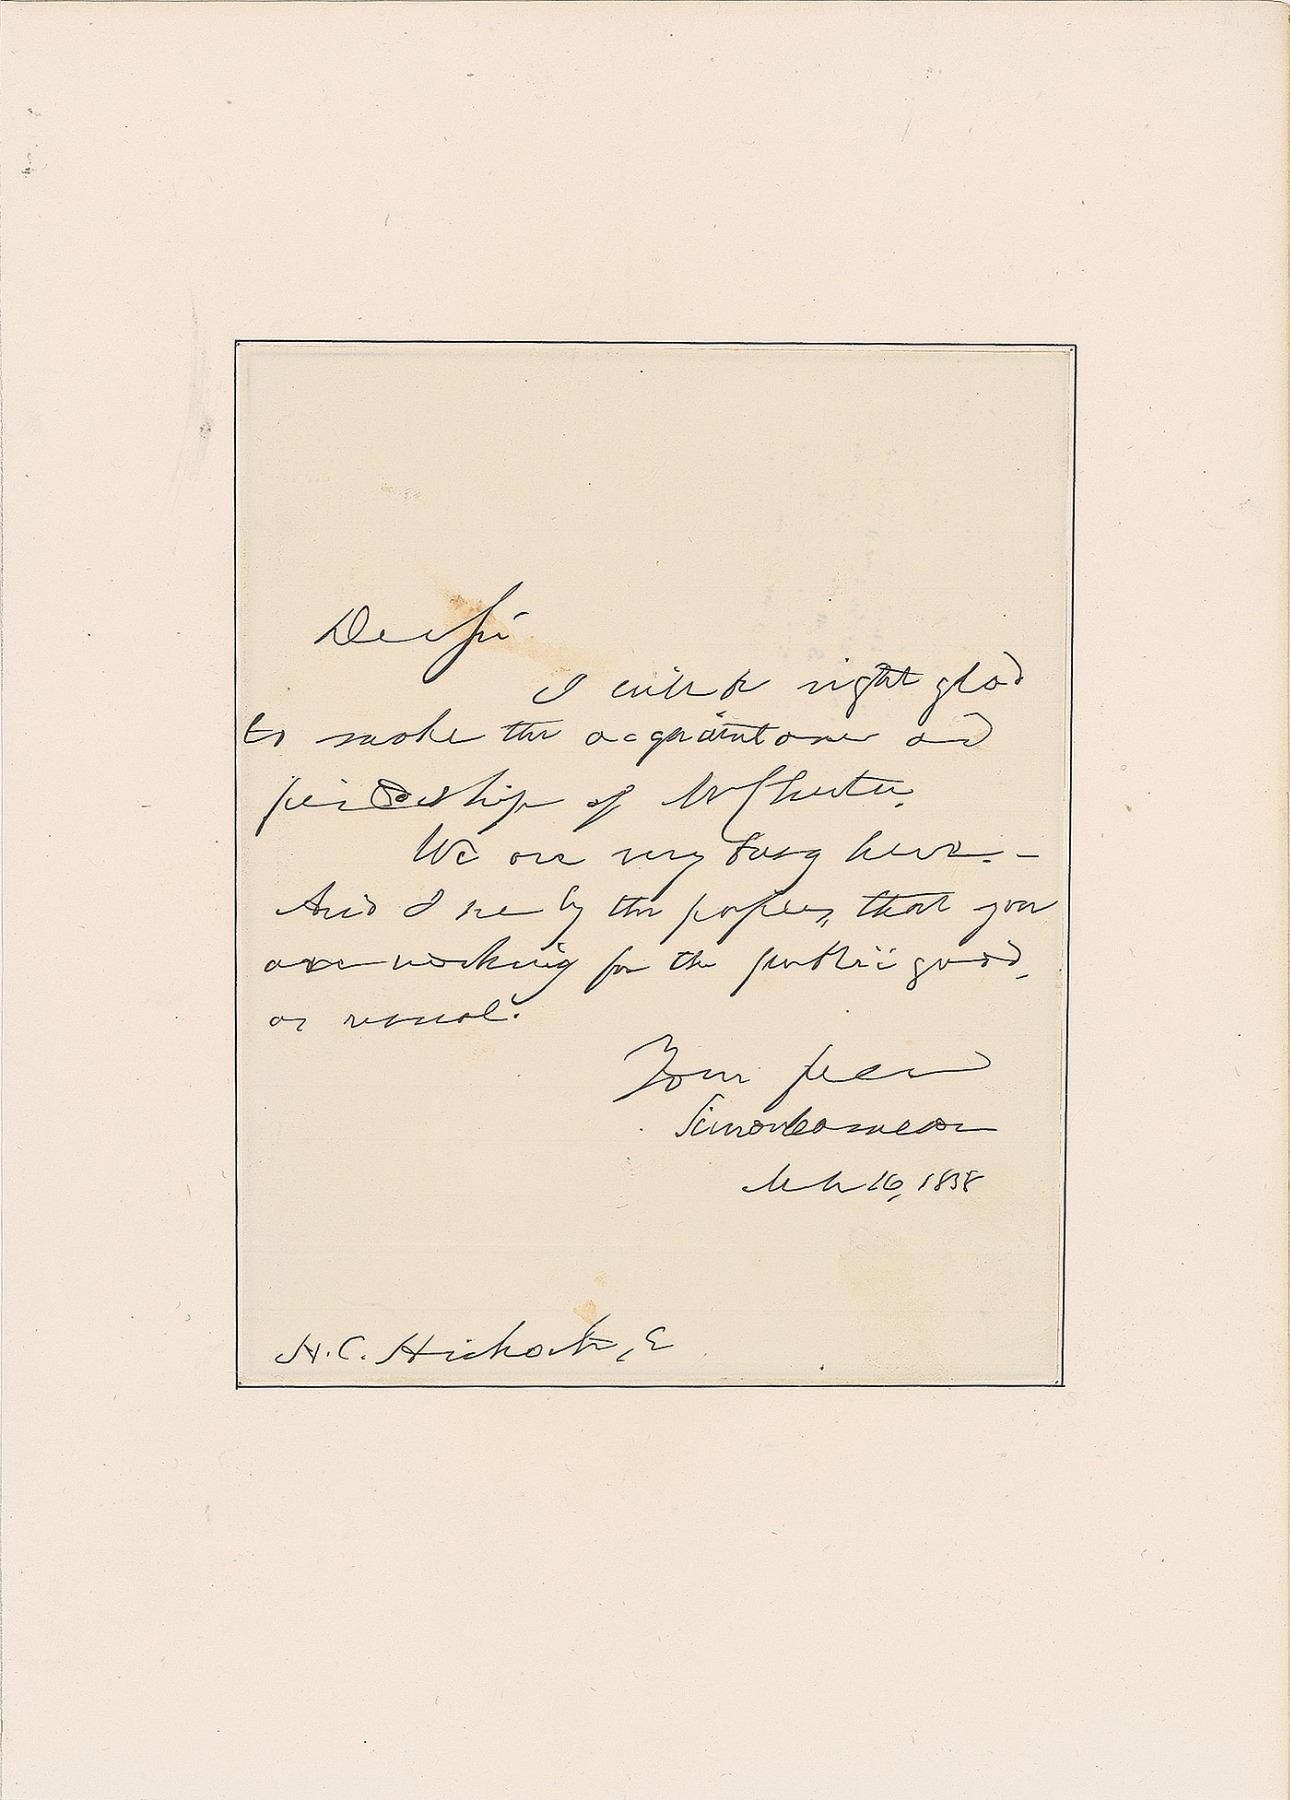 Dear Sir
I will be right glad
to make the acquaintance and
friendship of Mr Chester.
We are very busy here. –
And I see by the papers, that you
are working for the public good,
as usual.
Your friend
Simon Cameron
Mch 16, 1858
H. C. Hickok, E